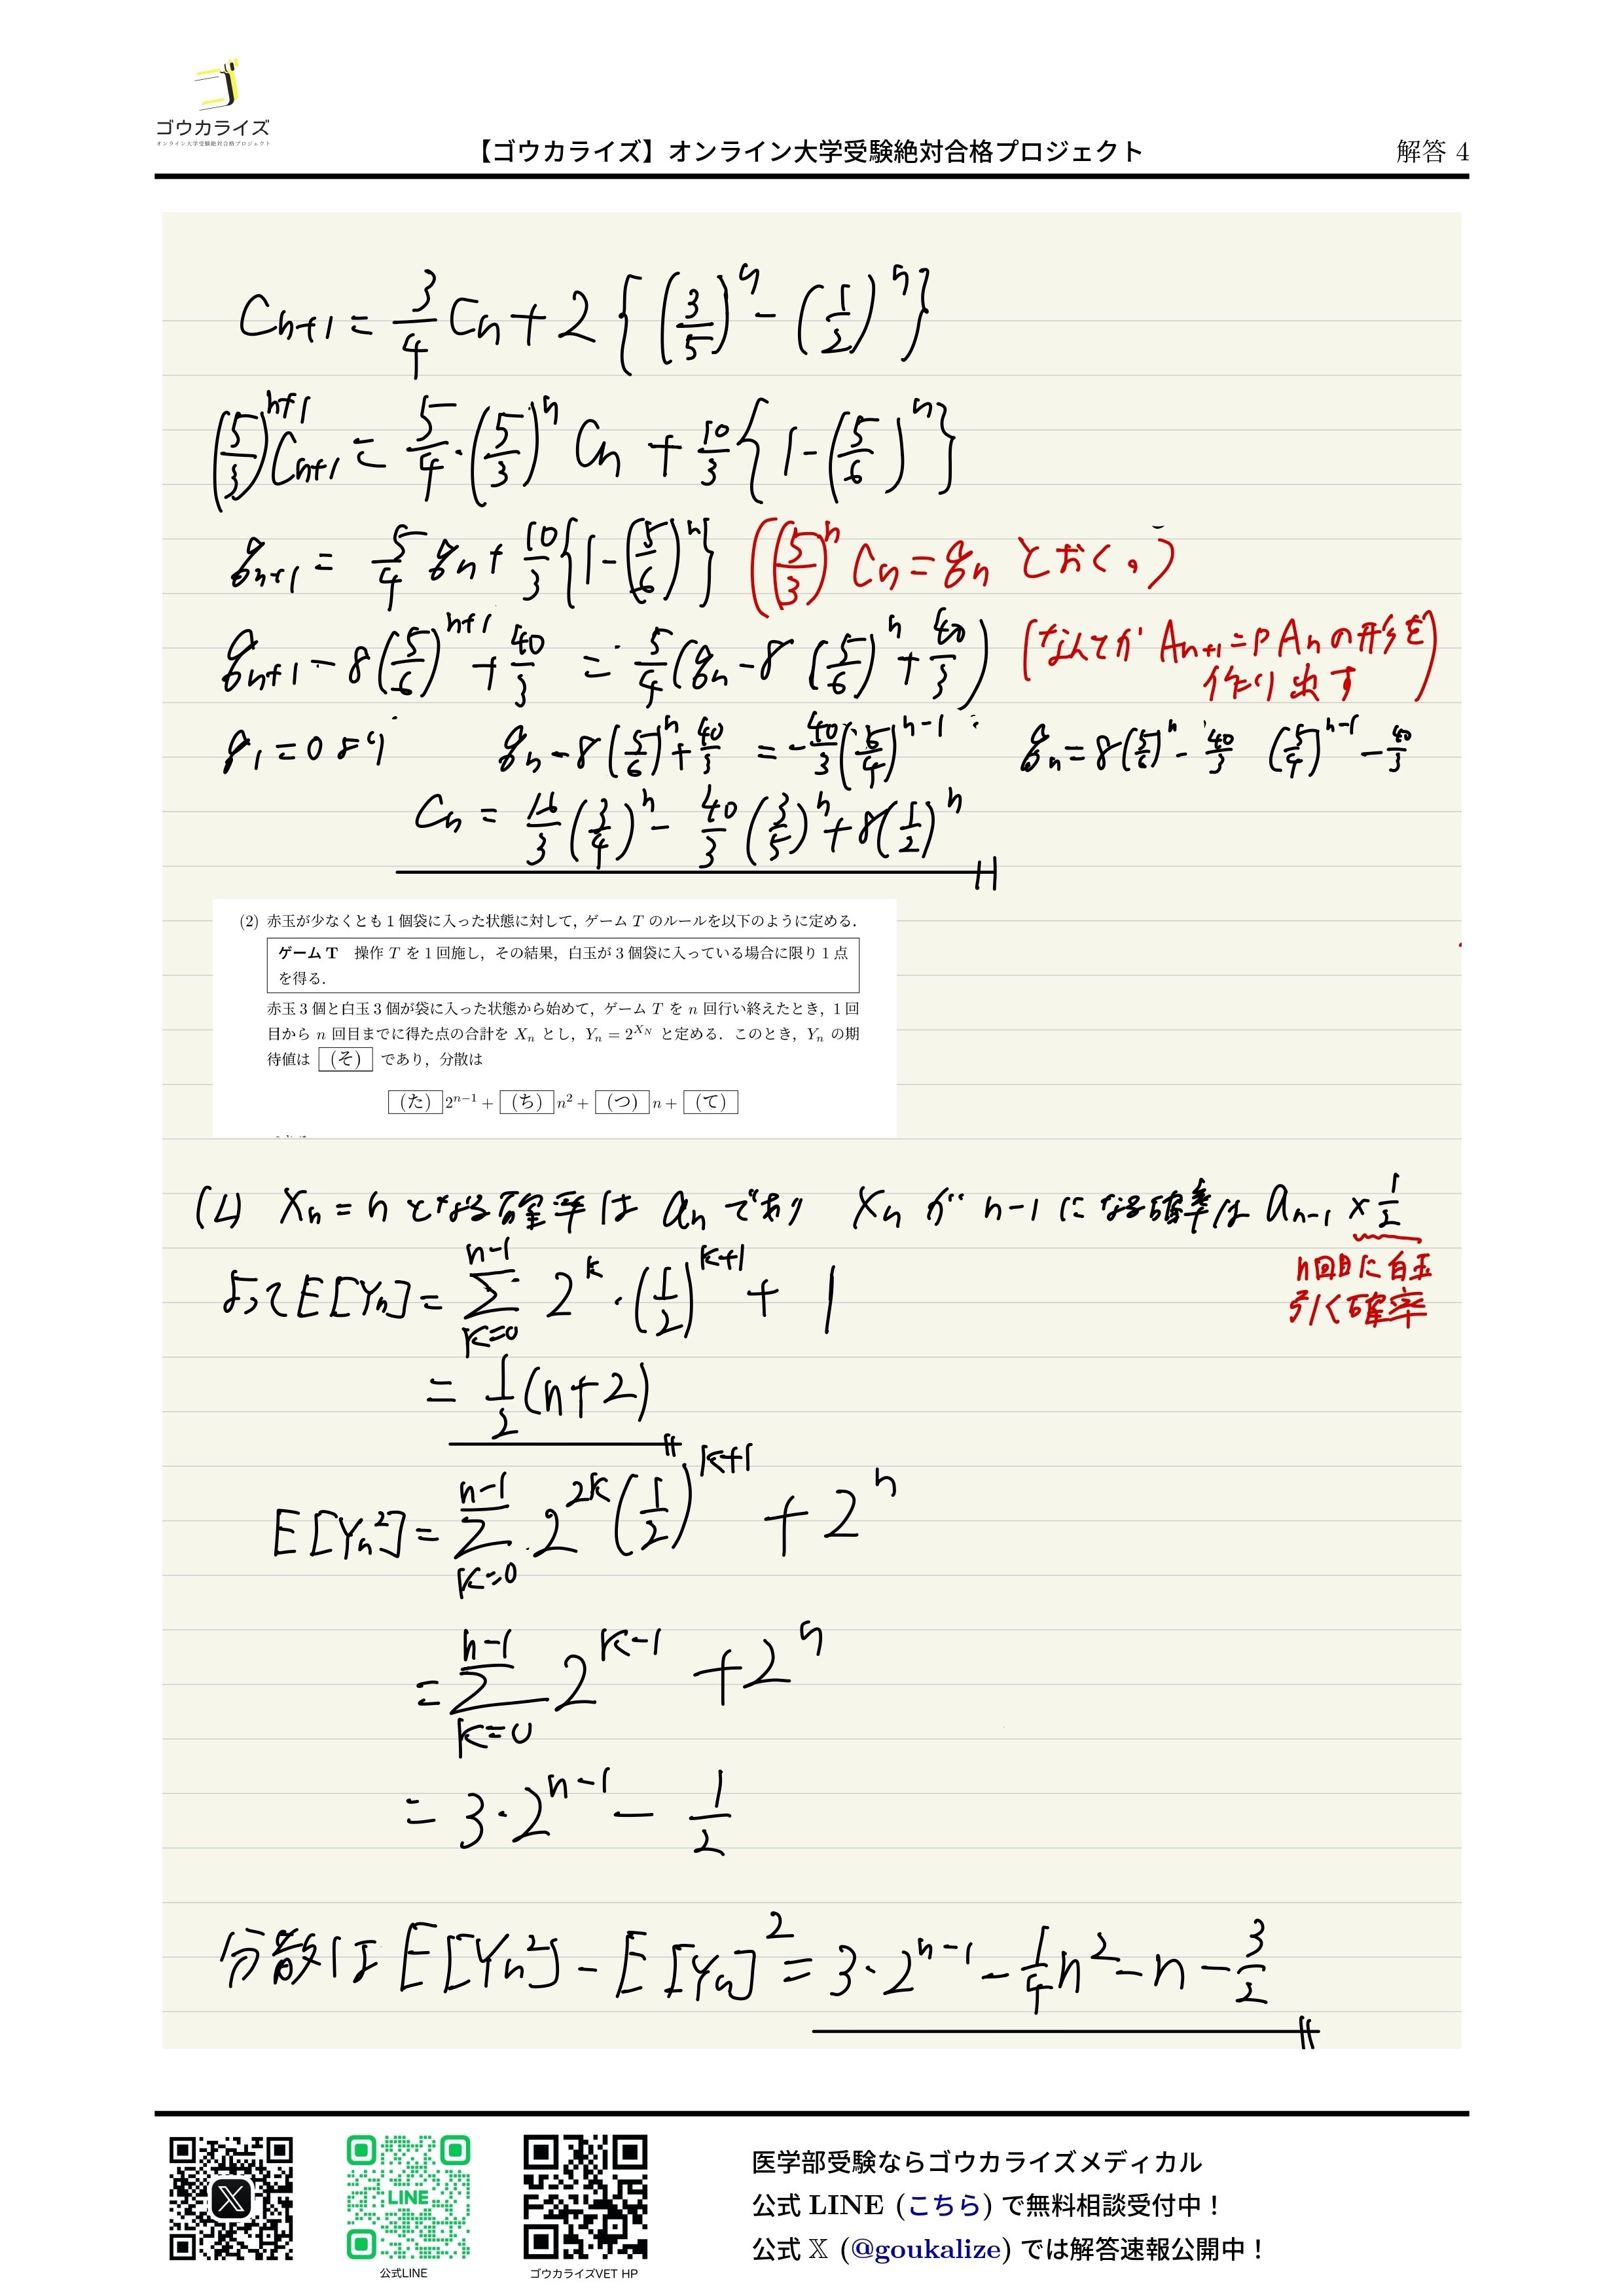 ゴウカライズ
オンライン大学受験絶対合格プロジェクト
【ゴウカライズ】オンライン大学受験絶対合格プロジェクト 解答 4
C_{n+1} = \frac{3}{4} C_n + 2 { (\frac{3}{5})^n - (\frac{1}{2})^n }
(\frac{5}{3})^{n+1} C_{n+1} = \frac{5}{4}・(\frac{5}{3})^n C_n + \frac{10}{3} { 1 - (\frac{5}{6})^n }
g_{n+1} = \frac{5}{4} g_n + \frac{10}{3} { 1 - (\frac{5}{6})^n } ((\frac{5}{3})^n C_n = g_n とおく。)
g_{n+1} - 8(\frac{5}{6})^{n+1} + \frac{40}{3} = \frac{5}{4} (g_n - 8(\frac{5}{6})^n + \frac{40}{3}) (なんとか A_{n+1} = P A_n の形を
作り出す)
g_1 = 0 より g_n - 8(\frac{5}{6})^n + \frac{40}{3} = -\frac{40}{3}(\frac{5}{4})^{n-1} g_n = 8(\frac{5}{6})^n - \frac{40}{3} (\frac{5}{4})^{n-1} - \frac{40}{3}
C_n = \frac{16}{3} (\frac{3}{4})^n - \frac{40}{3} (\frac{3}{5})^n + 8(\frac{1}{2})^n
(2) 赤玉が少なくとも 1 個袋に入った状態に対して, ゲーム T のルールを以下のように定める.
ゲーム T 操作 T を 1 回施し, その結果, 白玉が 3 個袋に入っている場合に限り 1 点
を得る.
赤玉 3 個と白玉 3 個が袋に入った状態から始めて, ゲーム T を n 回行い終えたとき, 1 回
目から n 回目までに得た点の合計を X_n とし, Y_n = 2^{X_N} と定める. このとき, Y_n の期
待値は (そ) であり, 分散は
(た) 2^{n-1} + (ち) n^2 + (つ) n + (て)
(2) X_n = n となる確率は a_n であり X_n が n-1 になる確率は a_{n-1} × \frac{1}{2}
n回目に白玉
引く確率
よって E[Y_n] = \sum_{k=0}^{n-1} 2^k・(\frac{1}{2})^{k+1} + 1
= \frac{1}{2} (n+2)
E[Y_n^2] = \sum_{k=0}^{n-1} 2^{2k} (\frac{1}{2})^{k+1} + 2^n
= \sum_{k=0}^{n-1} 2^{k-1} + 2^n
= 3・2^{n-1} - \frac{1}{2}
分散は E[Y_n^2] - E[Y_n]^2 = 3・2^{n-1} - \frac{1}{4} n^2 - n - \frac{3}{2}
LINE
公式LINE
ゴウカライズVET HP
医学部受験ならゴウカライズメディカル
公式 LINE (こちら) で無料相談受付中！
公式 𝕏 (@goukalize) では解答速報公開中！